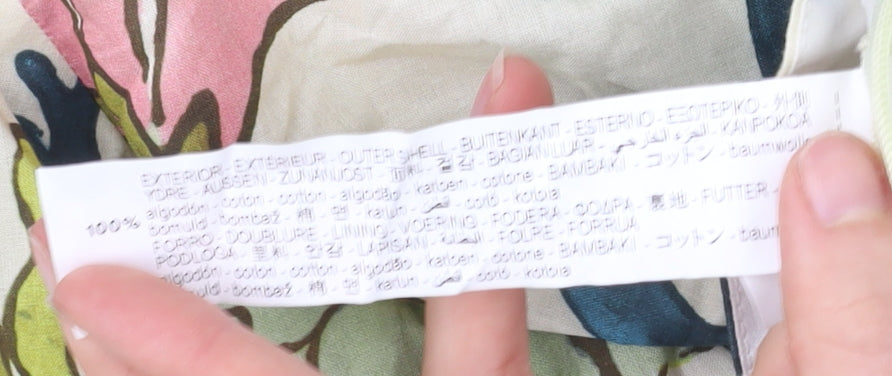 EXTERIOR - EXTÉRIEUR - OUTER SHELL - BUITENKANT - ESTERNO - ΕΞΩΤΕΡΙΚΟ - 外側
YDRE - AUSSEN - ZUNANJOST - 面料 - 겉감 - BAGIAN LUAR - الجزء الخارجي - KANPOKOA
100%
algodón - coton - cotton - algodão - katoen - cotone - ΒΑΜΒΑΚΙ - コットン - baumwolle
bomuld - bombaž - 棉 - 면 - katun - قطن - cotó - kotoia
FORRO - DOUBLURE - LINING - VOERING - FODERA - ΦΟΔΡΑ - 裏地 - FUTTER -
PODLOGA - 里料 - 안감 - LAPISAN - البطانة - FOLRE - FORRUA
algodón - coton - cotton - algodão - katoen - cotone - ΒΑΜΒΑΚΙ - コットン
bomuld - bombaž - 棉 - 면 - katun - قطن - cotó - kotoia